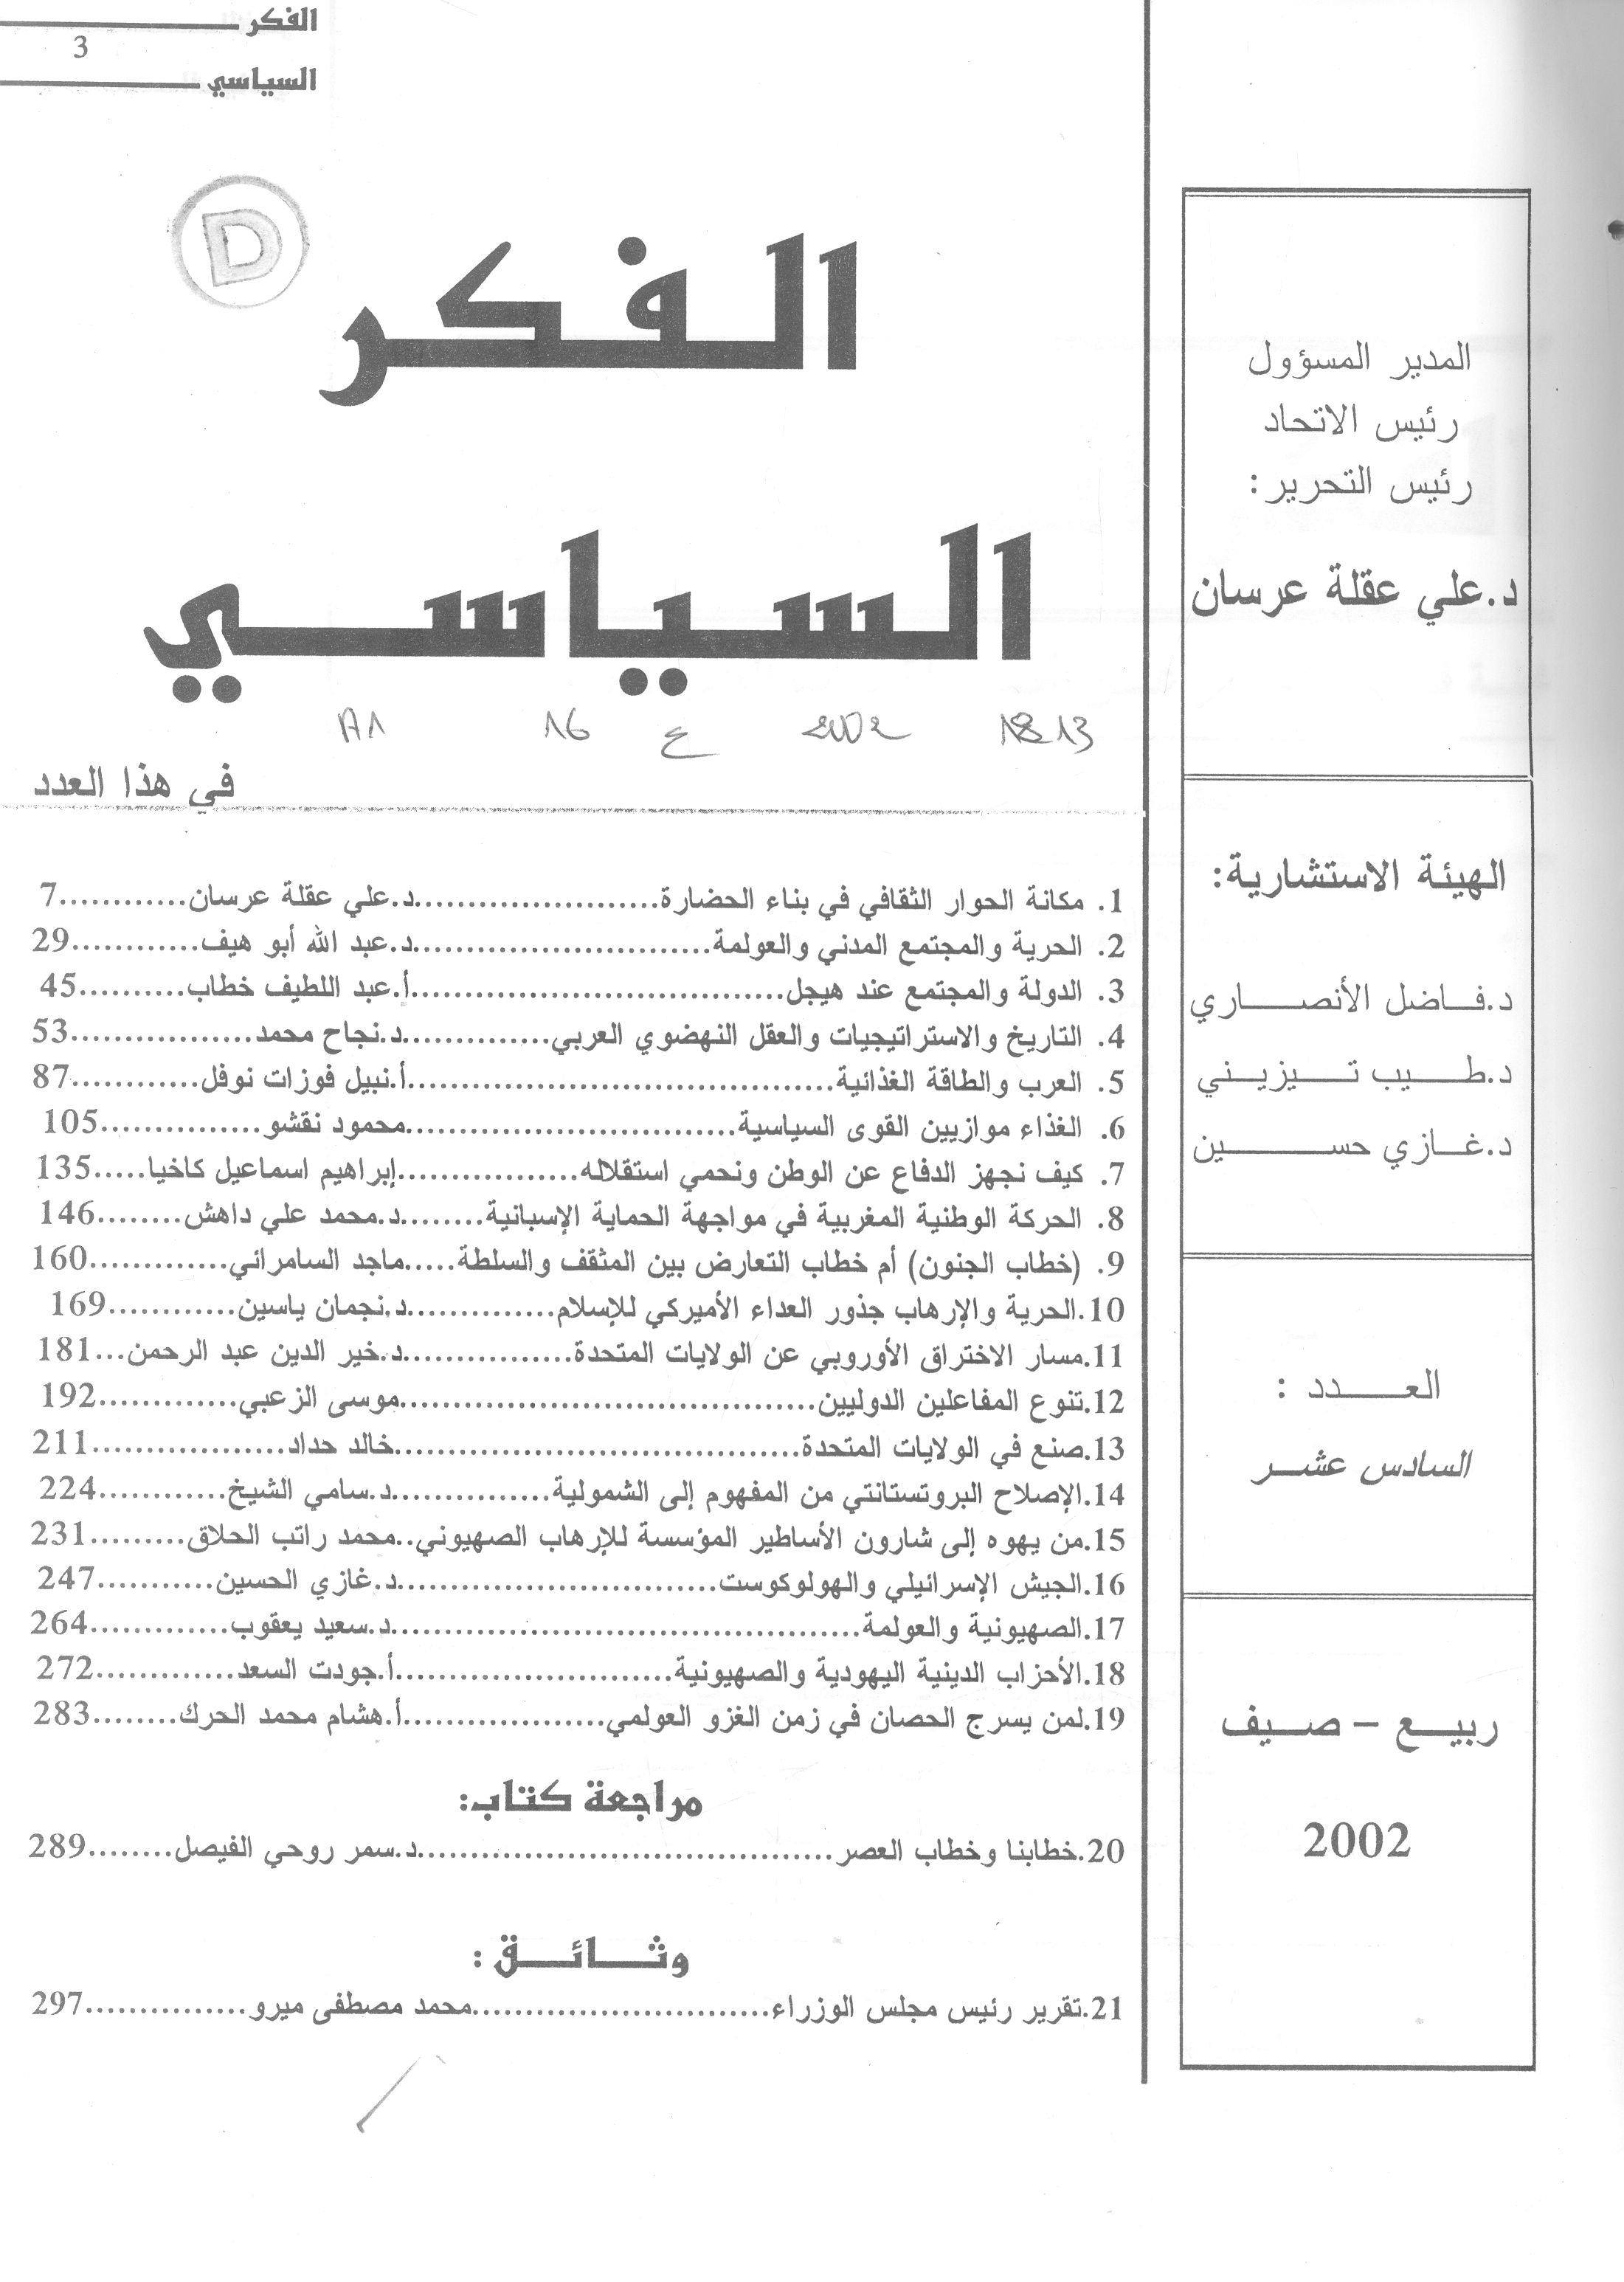 الفكر
3
السياسي
D
الفكر
السياسي
1813 2002 ع 16 A1
في هذا العدد
1. مكانة الحوار الثقافي في بناء الحضارة.......................د.علي عقلة عرسان............7
2. الحرية والمجتمع المدني والعولمة............................د.عبد الله أبو هيف............29
3. الدولة والمجتمع عند هيجل...................................أ.عبد اللطيف خطاب..........45
4. التاريخ والاستراتيجيات والعقل النهضوي العربي..............د.نجاح محمد.................53
5. العرب والطاقة الغذائية........................................أ.نبيل فوزات نوفل............87
6. الغذاء موازيين القوى السياسية...............................محمود نقشو...............105
7. كيف نجهز الدفاع عن الوطن ونحمي استقلاله.................إبراهيم اسماعيل كاخيا.....135
8. الحركة الوطنية المغربية في مواجهة الحماية الإسبانية........د.محمد علي داهش........146
9. (خطاب الجنون) أم خطاب التعارض بين المثقف والسلطة.....ماجد السامرائي.............160
10.الحرية والإرهاب جذور العداء الأميركي للإسلام..............د.نجمان ياسين............169
11.مسار الاختراق الأوروبي عن الولايات المتحدة................د.خير الدين عبد الرحمن...181
12.تنوع المفاعلين الدوليين........................................موسى الزعبي.............192
13.صنع في الولايات المتحدة.......................................خالد حداد...................211
14.الإصلاح البروتستانتي من المفهوم إلى الشمولية...............د.سامي الشيخ............224
15.من يهوه إلى شارون الأساطير المؤسسة للإرهاب الصهيوني..محمد راتب الحلاق.........231
16.الجيش الإسرائيلي والهولوكوست...............................د.غازي الحسين...........247
17.الصهيونية والعولمة.............................................د.سعيد يعقوب.............264
18.الأحزاب الدينية اليهودية والصهيونية...........................أ.جودت السعد.............272
19.لمن يسرج الحصان في زمن الغزو العولمي...................أ.هشام محمد الحرك........283
مراجعة كتاب:
20.خطابنا وخطاب العصر........................................د.سمر روحي الفيصل........289
وثائق :
21.تقرير رئيس مجلس الوزراء.............................محمد مصطفى ميرو...............297
المدير المسؤول
رئيس الاتحاد
رئيس التحرير:
د.علي عقلة عرسان
الهيئة الاستشارية:
د.فاضل الأنصاري
د.طيب تيزيني
د.غازي حسين
العدد :
السادس عشر
ربيع – صيف
2002